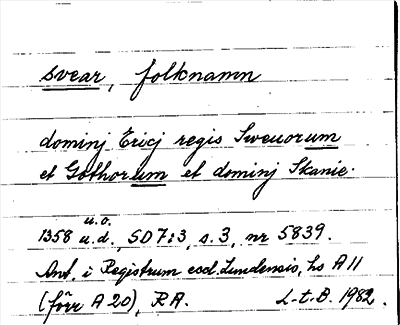 svear, folknamn
dominj Ericj regis Sweuorum
et Gothorum et dominj Skanie.
u.o.
1358 u.d., SD 7:3, s. 3, nr 5839.
Ant. i Registrum eccl. Lundensis, hs A 11
(förr A 20), RA. L-t. B. 1982.